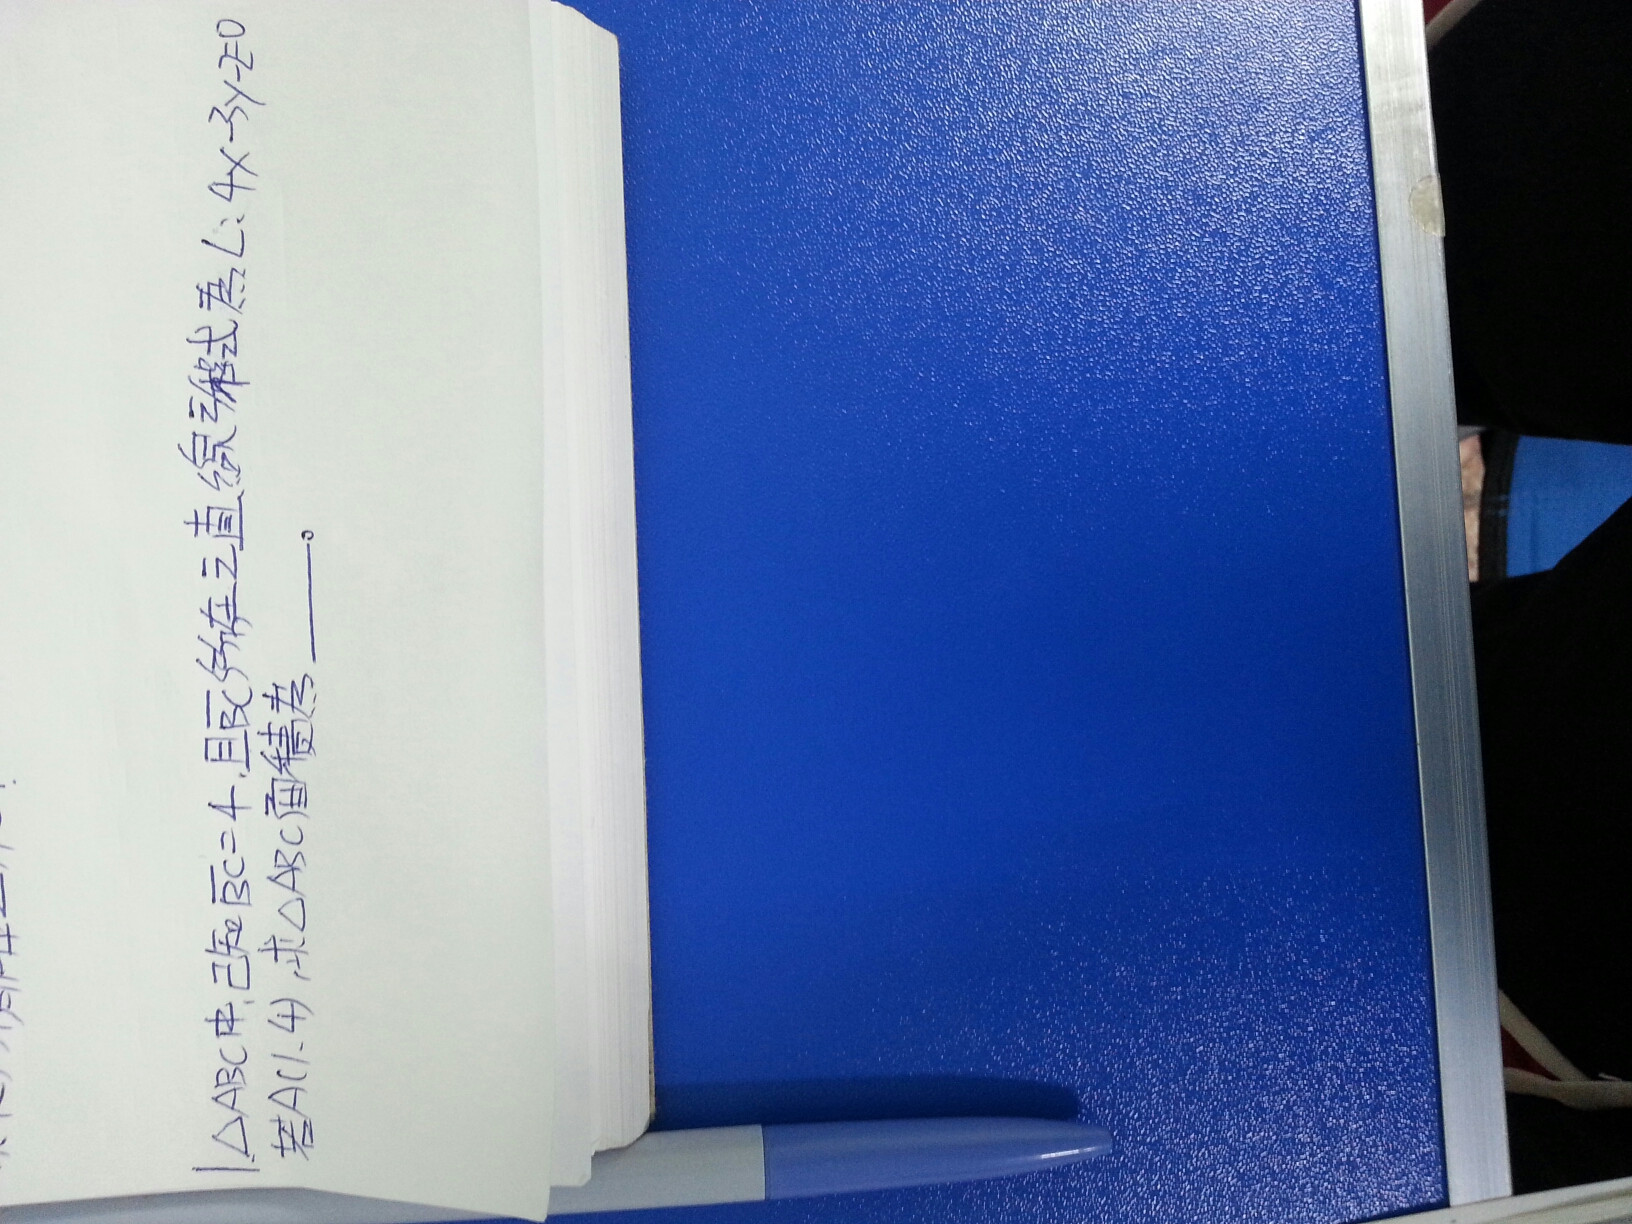 1. △ABC中,已知BC=4,且BC所在之直線方程式為L:4x-3y-2=0
若A(1,-4),求△ABC面積為______。